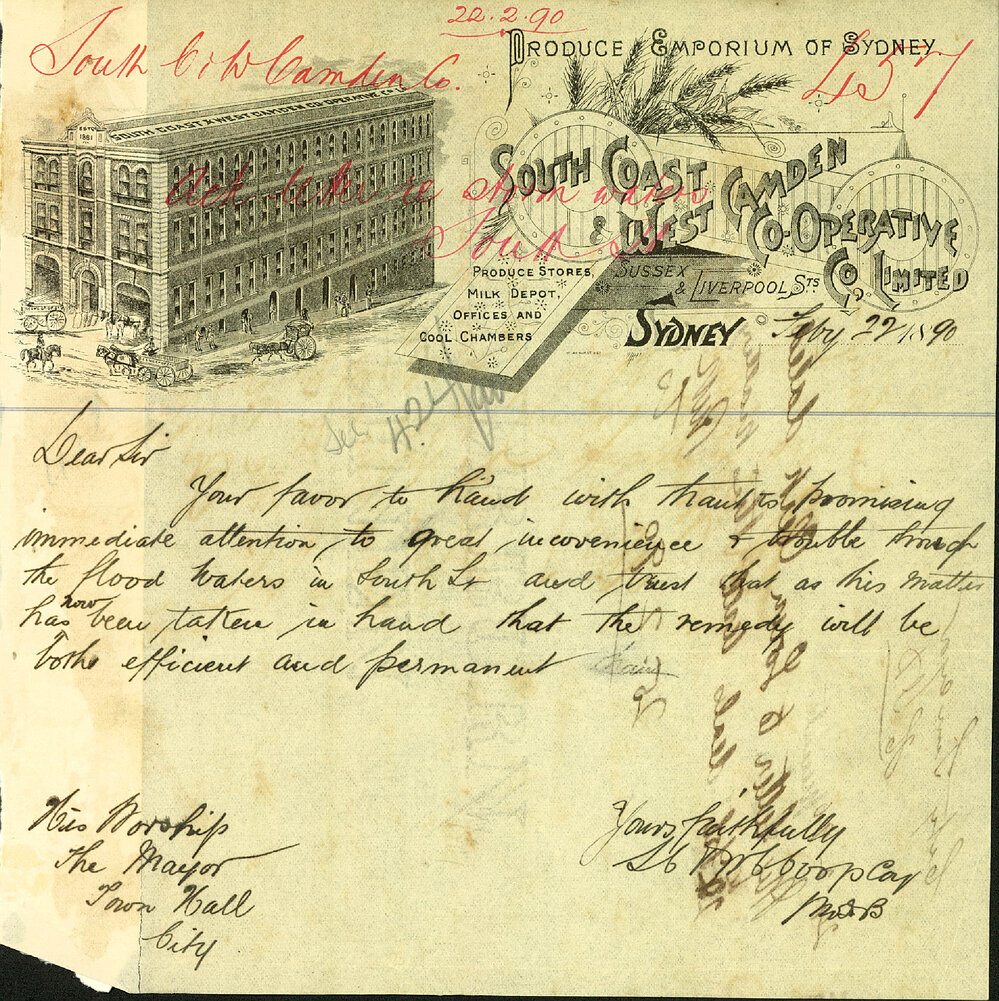 22.2.90
South C & W Camden Co.
457
Ack letter re storm waters
South St
PRODUCE EMPORIUM OF SYDNEY
ESTD
1881
SOUTH COAST & WEST CAMDEN CO-OPERATIVE CO
SOUTH COAST
& WEST CAMDEN
CO-OPERATIVE
CO. LIMITED
PRODUCE STORES,
MILK DEPOT,
OFFICES AND
COOL CHAMBERS
SUSSEX
& LIVERPOOL STS
SYDNEY Feby 22 1890
Dear Sir
Your favor to hand with thanks promising
immediate attention to great incovenience & trouble through
the flood waters in South St and trust that as this matter
has now been taken in hand that the remedy will be
bothe efficient and permanent
His Worship
The Mayor
Town Hall
City
Yours faithfully
Coop Coy